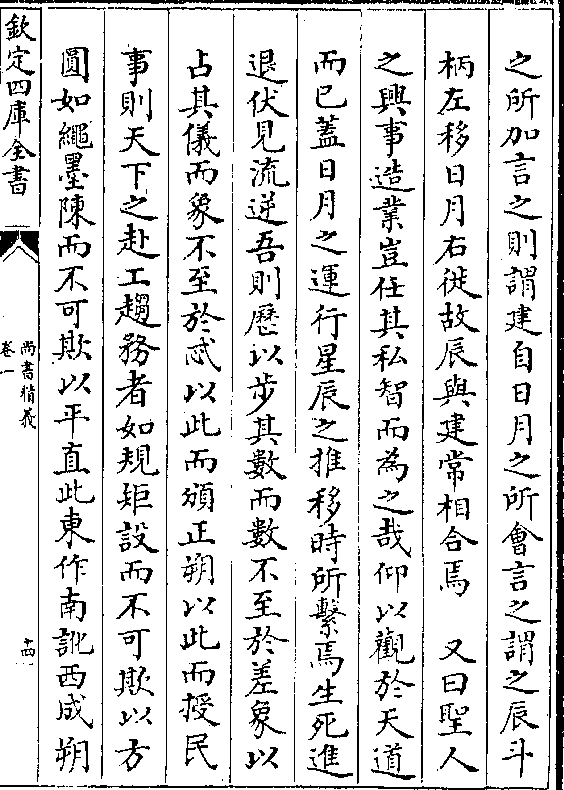 之所加言之則謂建自日月之所會言之謂之辰斗
柄左移日月右徙故辰與建常相合焉　又曰聖人
之興事造業豈任其私智而為之哉仰以觀於天道
而已蓋日月之運行星辰之推移時所繫焉生死進
退伏見流逆吾則厯以步其數而數不至於差象以
占其儀而象不至於忒以此而頒正朔以此而授民
事則天下之赴工趨務者如規矩設而不可欺以方
圓如繩墨陳而不可欺以平直此東作南訛西成朔
欽定四庫全書
尚書精義
卷一
十四